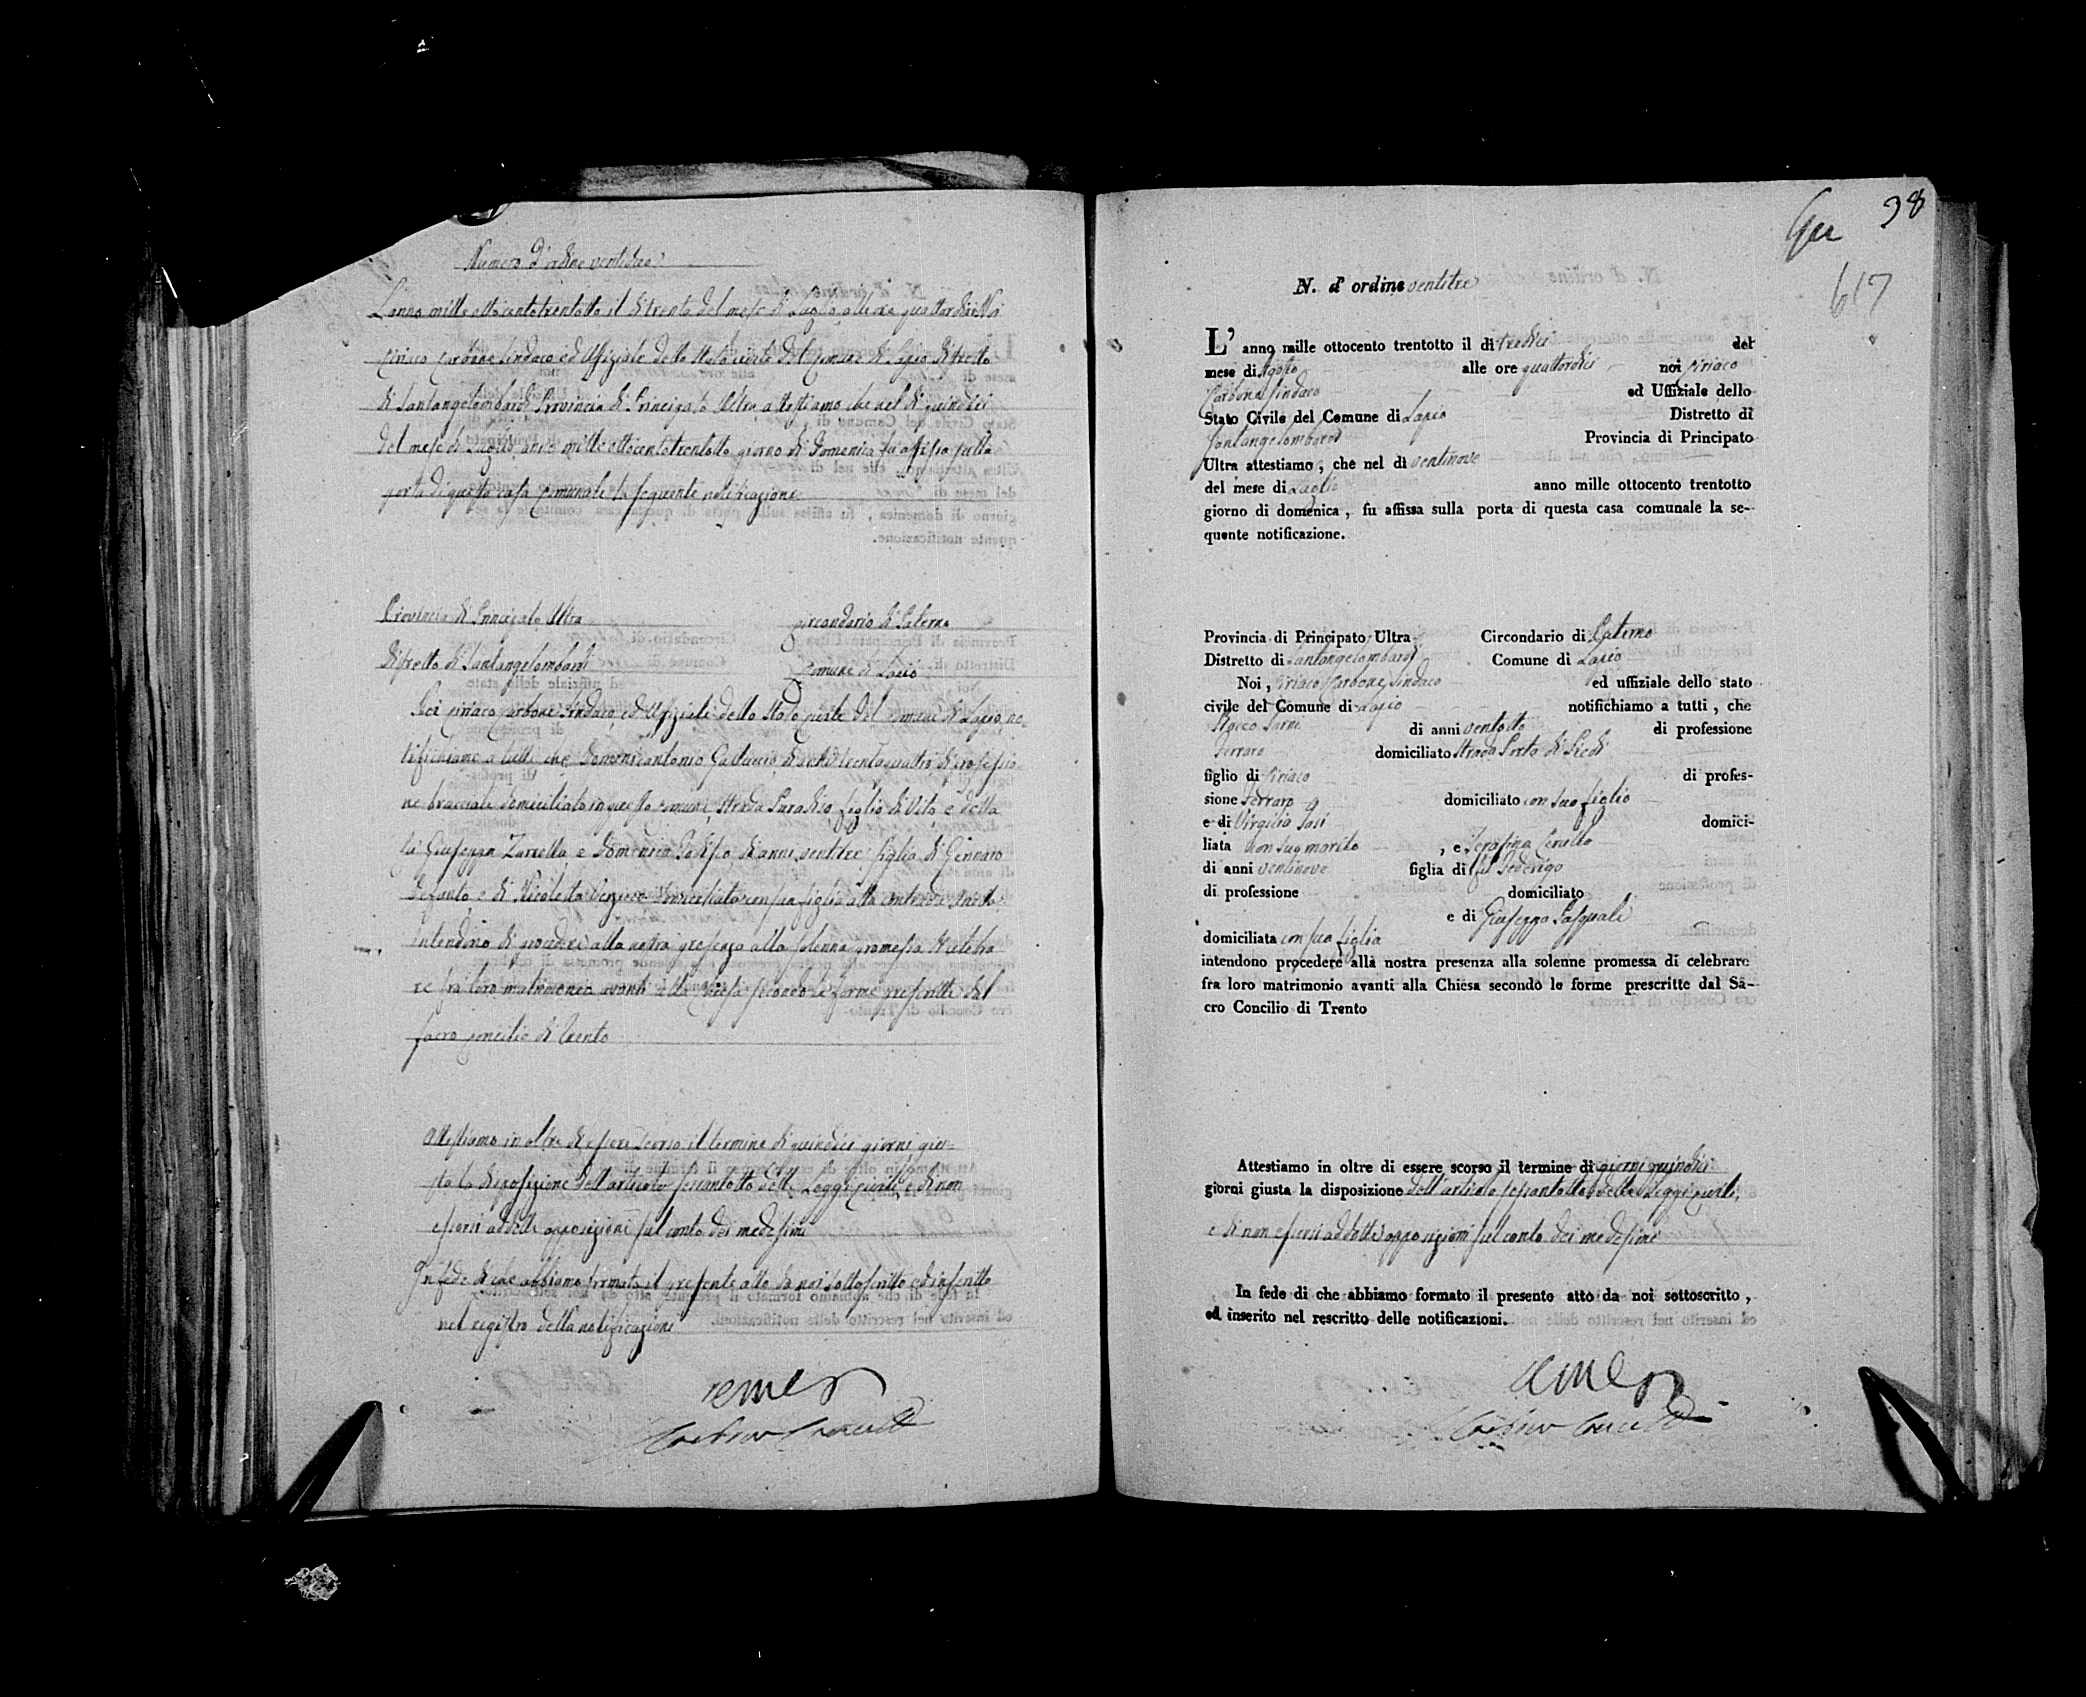 Numero d'ordine ventidue
L'anno mille ottocentotrentotto il dì trenta del mese di Luglio alle ore quattordici Noi
Ciriaco Carbone Sindaco ed Uffiziale dello Stato civile del Comune di Lapio Distretto
di Santangelombardi Provincia di Principato Ultra attestiamo che nel dì quindici
del mese di Luglio anno mille ottocentotrentotto giorno di Domenica fu affissa sulla
porta di questa casa Comunale la seguente notificazione
Provincia di Principato Ultra Circondario di Paterno
Distretto di Santangelombardi Comune di Lapio
Noi Ciriaco Carbone Sindaco ed Uffiziale dello Stato civile del Comune di Lapio no
tifichiamo a tutti che Domenicantonio di anni trentaquattro di professio
ne bracciale domiciliato in questo Comune Strada Paradiso figlio di Vito e della
fu Giuseppa Zarrella e Domenica di anni ventitre figlia di Gennaro
defunto e di Nicoletta domiciliata con sua figlia alla contrada
intendono di procedere alla nostra presenza alla solenne promessa di celebra
re fra loro matrimonio avanti alla Chiesa secondo le forme prescritte dal
sacro Concilio di Trento
Attestiamo in oltre di essere scorso il termine di quindici giorni giu=
sta la disposizione dell'articolo sessantotto delle Leggi civili, e di non
essersi addotte opposizioni sul conto dei medesimi
In fede di che abbiamo formato il presente atto da noi sottoscritto ed inscritto
nel registro delle notificazioni
38
617
N. d' ordine ventitre
L' anno mille ottocento trentotto il dì tredici del
mese di Agosto alle ore quattordici noi Ciriaco
Carbone Sindaco ed Uffiziale dello
Stato Civile del Comune di Lapio Distretto di
Santangelombardi Provincia di Principato
Ultra attestiamo, che nel dì ventinove
del mese di Luglio anno mille ottocento trentotto
giorno di domenica, fu affissa sulla porta di questa casa comunale la se-
quente notificazione.
Provincia di Principato Ultra Circondario di Paterno
Distretto di Santangelombardi Comune di Lapio
Noi, Ciriaco Carbone Sindaco ed uffiziale dello stato
civile del Comune di Lapio notifichiamo a tutti, che
Rocco di anni ventotto di professione
Ferraro domiciliato Strada Porta di Piedi
figlio di Ciriaco di profes-
sione Ferraro domiciliato con suo figlio
e di Virgilia domici-
liata con suo marito, e Serafina
di anni ventinove figlia di fu Federigo
di professione domiciliato
e di Giuseppa Pasquale
domiciliata con sua figlia
intendono procedere alla nostra presenza alla solenne promessa di celebrare
fra loro matrimonio avanti alla Chiesa secondo le forme prescritte dal Sa-
cro Concilio di Trento
Attestiamo in oltre di essere scorso il termine di giorni quindici
giorni giusta la disposizione dell'articolo sessantotto delle Leggi civili,
e di non essersi addotte opposizioni sul conto dei medesimi
In fede di che abbiamo formato il presente atto da noi sottoscritto,
ed inserito nel rescritto delle notificazioni.